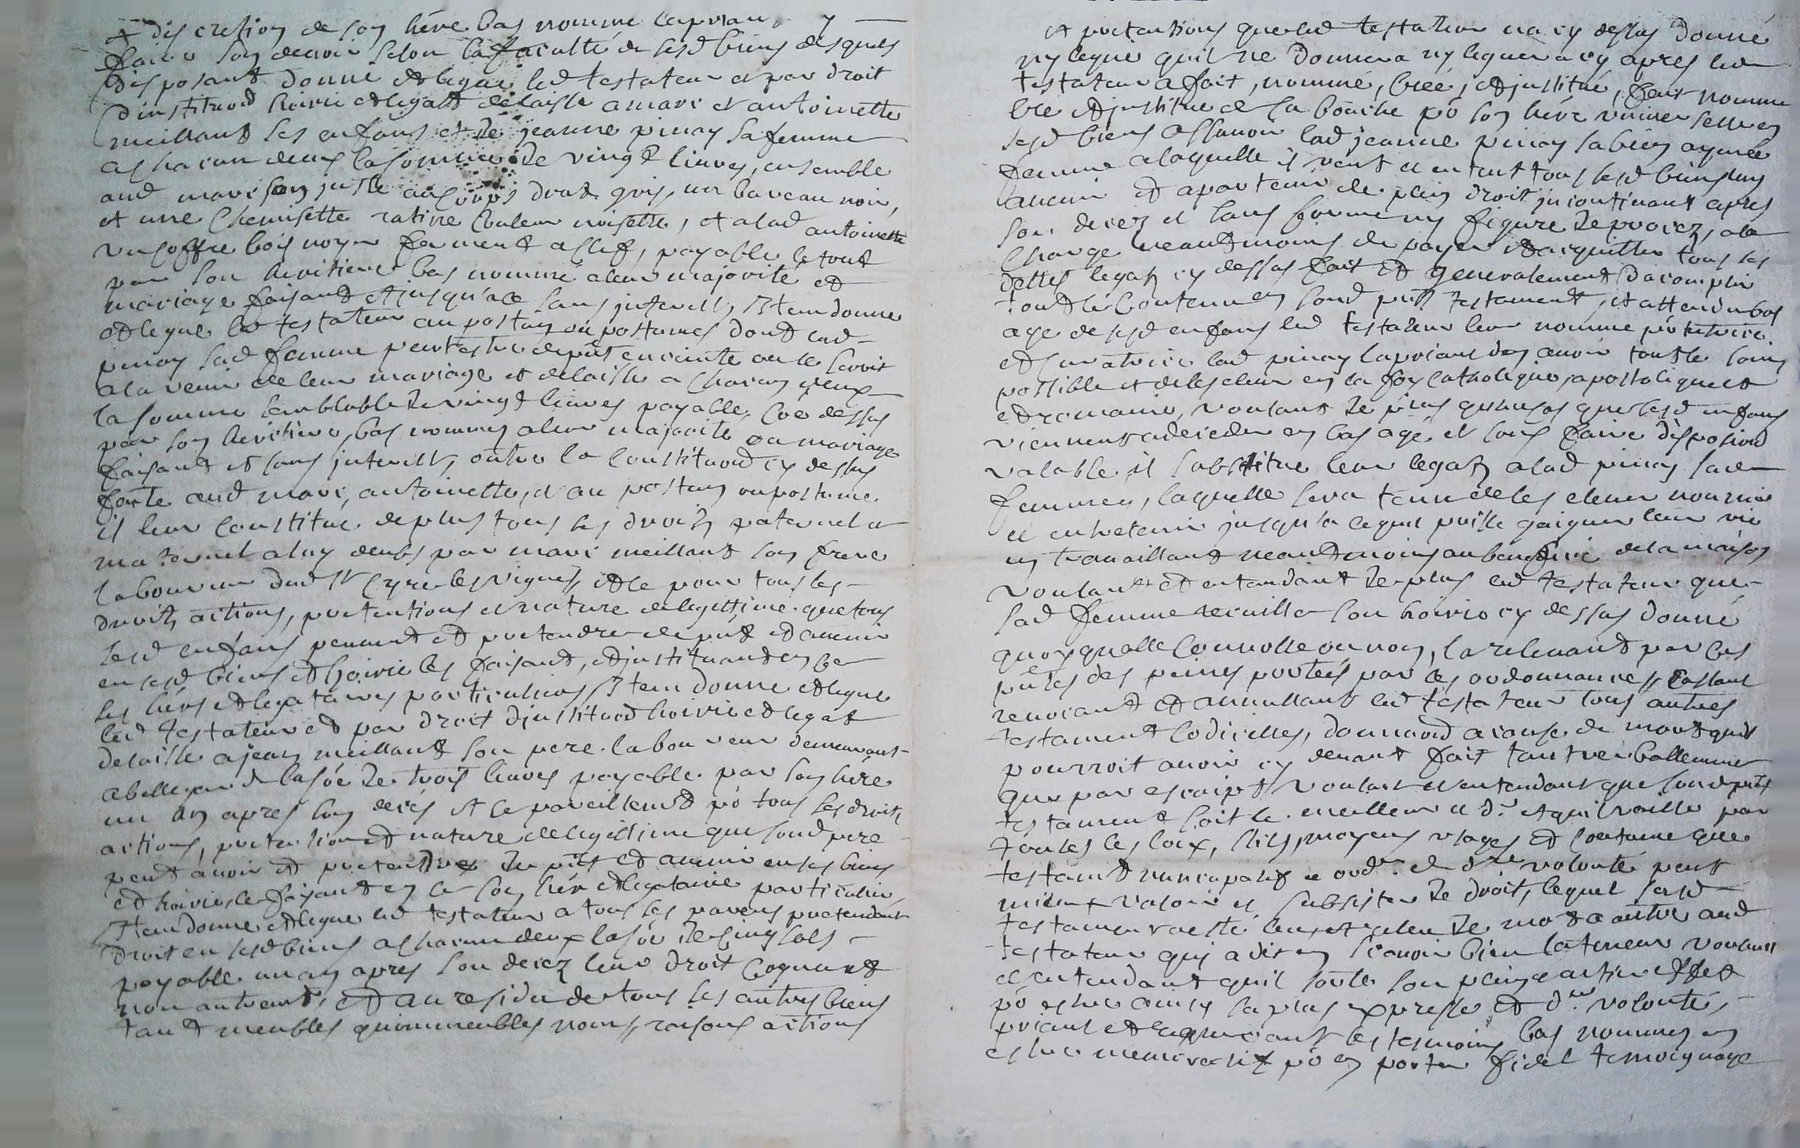 a discretion de son hére bas nommé la priant
faire son devoir selon la faculté de sesd biens desquels
disposant donne et legue led testateur et par droit
d'instituõn hoirie et legat delaisse a marie et antoinette
meilland ses enfans et de jeanne pinay sa femme
a chacun deux la somme de vingt livres, ensemble
aud marie son juste au corps drat gris, un bareau noir,
et une chemisette ratine couleur noisette, et a lad antoinette
un coffre bois noyer fermant a clef, payable le tout
par son heritiere bas nommé a leur majorité et
mariage faisant et jusqu'a ce sans interest, Item donne
et legue led testateur au postume ou postumes dont lad
pinay sad femme peut estre de p̃nt enceinte ou le seroit
a la venir de leur mariage et delaisse a chacun d'eux
la somme semblable de vingt livres payable, coe dessus
par son heritiere bas nommez a leur majorité ou mariage
faisant et sans interest, outre la constituõn cy dessus
faite aud marie, antoinette, et au postum ou postume.
il leur constitue de plus tous les droits paternel et
maternel a luy deubs par marie meilland son frere
laboureur dud St Cyre les vignes, et le pour tous les
droits, actions, pretentions et nature de legitime que tous
sesd enfans peuvent et pretendre de p̃nt et avenir
en sesd biens et hoirie les faisant, et instituant en ce
ses hérs et legataires particuliers, Item donne et legue
led testateur et par droit d'instituõn hoirie et legat
delaisse a jean meilland son pere laboureur demeurant
a bellegarde la sõe de trois livres payable par son hére
un an apres son decés et ce pareillement põ tous les droits,
actions, pretention et nature de legitime que sond pere
peut avoir et pretendre de p̃nt et avenir en ses biens
et hoirie le faisant en ce son hére et legataire particulier,
Item donne et legue led testateur a tous ses parens pretendant
droit en sesd biens a chacun deux la sõe de cinq sols
payable un an apres son decez leur droit cognu et
non autrement, et au residu de tous les autres biens
tant meubles qu'immeubles noms, raisons actions
et pretentions que led testateur na cy dessus donné
ny legué qu'il ne donnera ny leguera cy apres led
testateur a fait, nommé, creé, et institué, fait nomme
cré et institue de sa bouche põ son hére universelle en
sesd biens assavoir lad jeanne pinay sa bien aymée
femme a laquelle il veut et entend tous sesd biens luy
avenir et apartenir de plein droit incontinent apres
son decez et sans forme ny figure de procez, a la
charge neantmoins de payer et acquitter tous ses
dettes legats cy dessus fait et generalement d'acomplir
tout le contenu en sond p̃nt testament, et attendu bas
age de sesd enfans led testateur leur nomme põ tutrice
et curatrice lad pinay la priant d'en avoir tout le soin
possible et de les elever en la foy catholique, apostolique
et romaine, voulant de plus qu'en cas que sesd enfans
viennent a deceder en bas age et sans faire disposiõn
valable il substitue leur legats a lad pinay sad
femme, laquelle sera tenue de les elever nourrir
et entretenir jusqu'a ce quil puisse gaigner leur vie
en travaillant neantmoins au benefice de la maison
voulant et entendant de plus led testateur que
sad femme recueille son hoirie cy dessus donné
quoyqu'elle convolle ou non, la relevant par ces
p̃ntes des peines portées par les ordonnances, Cassant
revocant et annullant led testateur tous autres
testament codicilles, donnaõn a cause de mort qu'il
pourroit avoir cy devant fait tant verballement
que par escript voulant et entendant que sond p̃nt
testament soit le meilleur et dr et quil vaille par
toutes les loix, stils, moyens usages et coutume que
testamt nuncupatif et ordre de dre volonté peut
mieux valoir et subsister de droit, lequel sond
testament a esté leu et releu de mot a autre aud
testateur qui a dit en scavoir bien la teneur voulant
et entendant quil sorte son plein et antier effet
põ estre ainsy sa plus expresse et dre volonté,
priant et requerant les tesmoins bas nommez en
estre memoratif põ en porter fidel temoignage